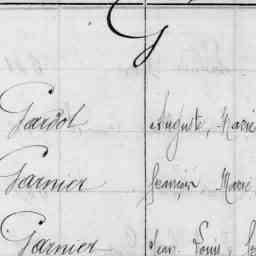 G
Gardot Auguste, Marie
Garnier François, Marie
Garnier Jean Louis,